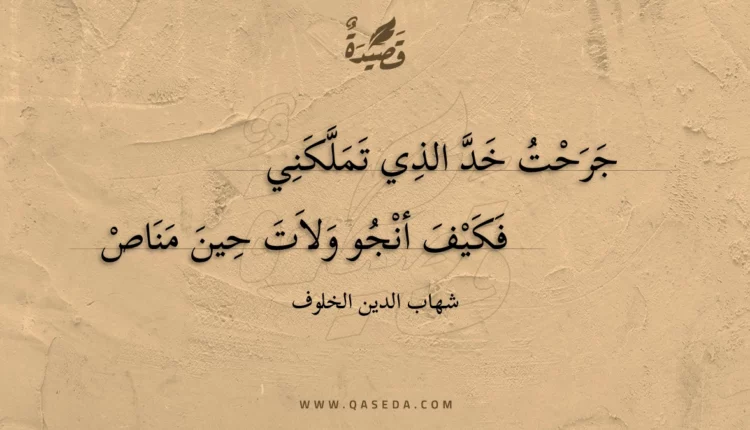 قَصِيدَةٌ
جَرَحْتُ خَدَّ الذِي تَمَلَّكَنِي
فَكَيْفَ أنْجُو وَلاَتَ حِينَ مَنَاصْ
شهاب الدين الخلوف
WWW.QASEDA.COM